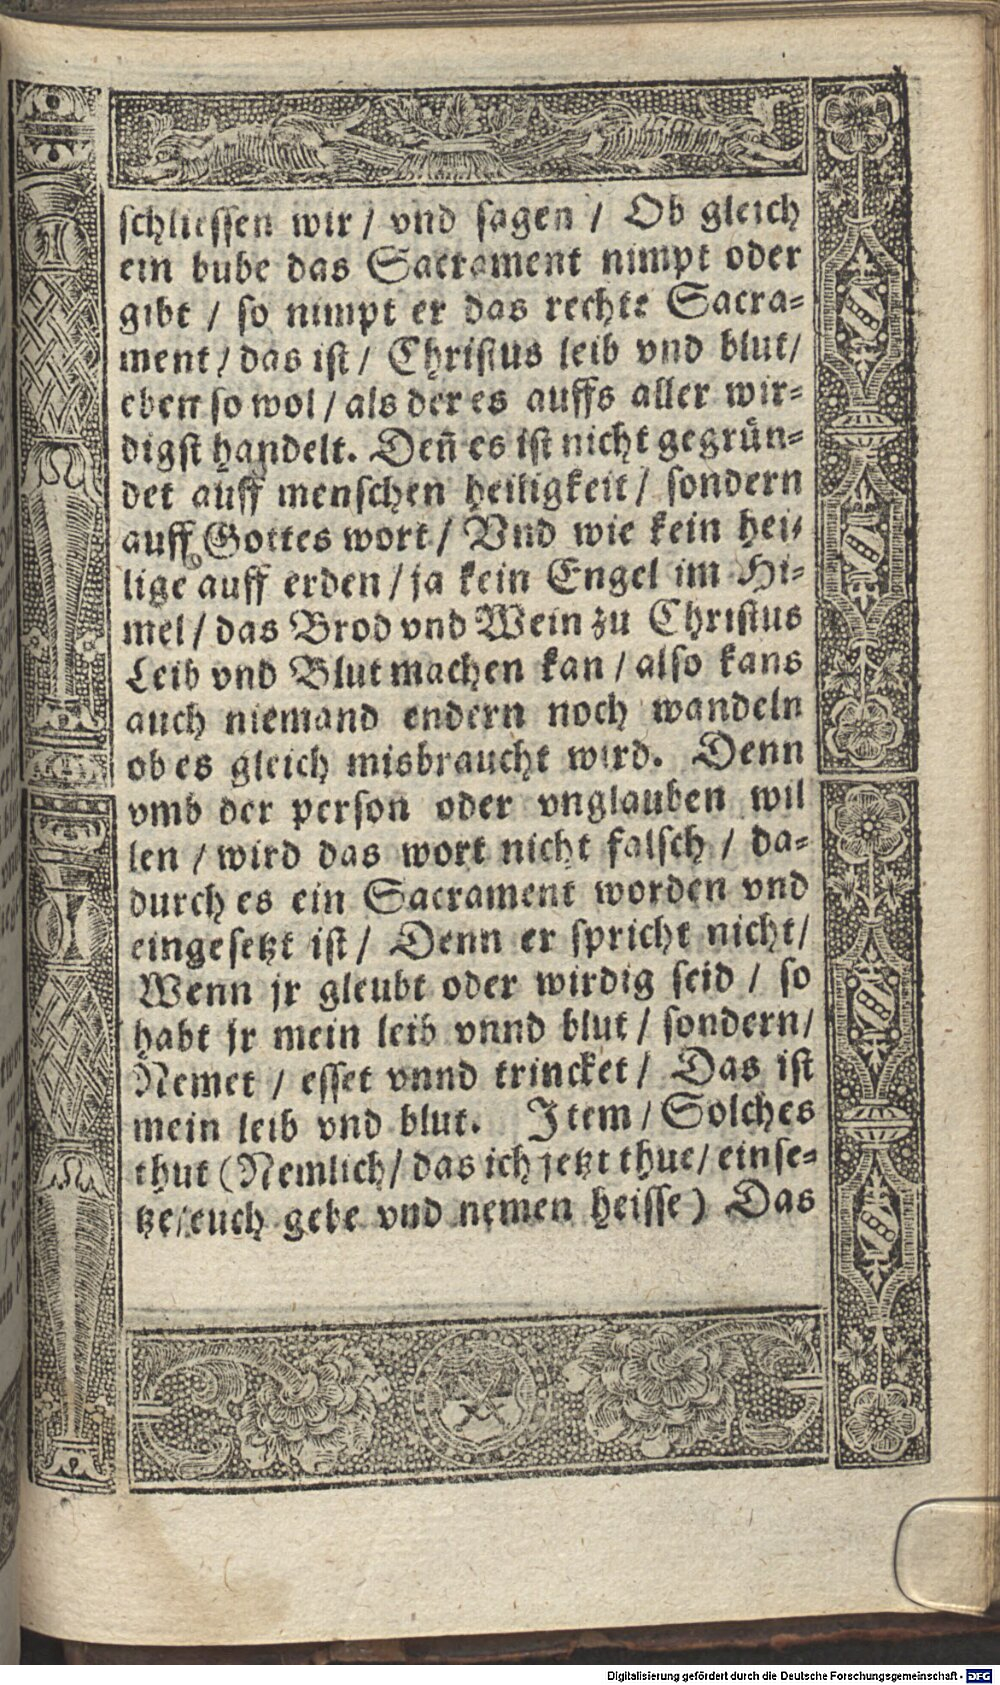 schliessen wir / vnd sagen / Ob gleich
ein bube das Sacrament nimpt oder
gibt / so nimpt er das rechte Sacra-
ment / das ist / Christus leib vnd blut /
eben so wol / als der es auffs aller wir-
digst handelt. Deñ es ist nicht gegrün-
det auff menschen heiligkeit / sondern
auff Gottes wort / Vnd wie kein hei-
lige auff erden / ja kein Engel im Hi-
mel / das Brod vnd Wein zu Christus
Leib vnd Blut machen kan / also kans
auch niemand endern noch wandeln
ob es gleich misbraucht wird. Denn
vmb der person oder vnglauben wil
len / wird das wort nicht falsch / da-
durch es ein Sacrament worden vnd
eingesetzt ist / Denn er spricht nicht /
Wenn jr gleubt oder wirdig seid / so
habt jr mein leib vnnd blut / sondern /
Nemet / esset vnnd trincket / Das ist
mein leib vnd blut. Item / Solches
thut (Nemlich / das ich jetzt thue / einse-
tze / euch gebe vnd nemen heisse) Das
Digitalisierung gefördert durch die Deutsche Forschungsgemeinschaft - DFG